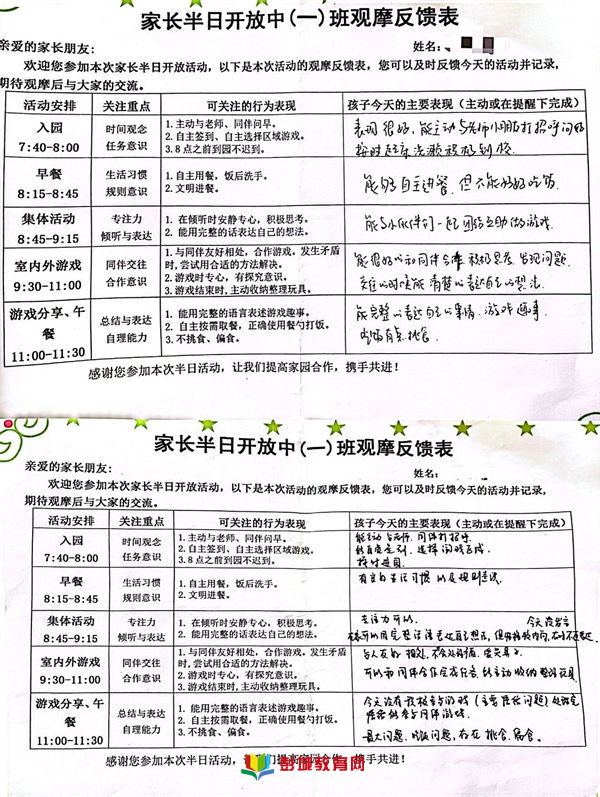 家长半日开放中(一)班观摩反馈表
亲爱的家长朋友:
姓名:
欢迎您参加本次家长半日开放活动，以下是本次活动的观摩反馈表，您可以及时反馈今天的活动并记录，
期待观摩后与大家的交流。
活动安排 关注重点 可关注的行为表现 孩子今天的主要表现（主动或在提醒下完成）
入园
7:40-8:00
时间观念
任务意识
1.主动与老师、同伴问早。
2.自主签到、自主选择区域游戏。
3.8点之前到园不迟到。
表现很好,能主动与老师小朋友打招呼问好
按时起床洗漱
早餐
8:15-8:45
生活习惯
规则意识
1.自主用餐，饭后洗手。
2.文明进餐。
能够自主进餐，但不能好好吃菜
集体活动
8:45-9:15
专注力
倾听与表达
1.在倾听时安静专心，积极思考。
2.能用完整的话表达自己的想法。
能与小伙伴们一起团结互助做游戏.
室内外游戏
9:30-11:00
同伴交往
合作意识
1.与同伴友好相处，合作游戏。发生矛盾
时,尝试用合适的方法解决。
2.游戏时专心，有探究意识。
3.游戏结束时,主动收纳整理玩具。
能很好的和同伴合作 积极思考、发现问题.
能清楚的表达自己的想法.
游戏分享、午
餐
11:00-11:30
总结与表达
自理能力
1.能用完整的语言表述游戏趣事。
2.自主按需取餐，正确使用餐勺打饭。
3.不挑食、偏食。
能完整的表达自己的事情、游戏趣事.
有点挑食.
感谢您参加本次半日活动，让我们提高家园合作，携手共进！
家长半日开放中(一)班观摩反馈表
亲爱的家长朋友:
姓名:
欢迎您参加本次家长半日开放活动，以下是本次活动的观摩反馈表，您可以及时反馈今天的活动并记录，
期待观摩后与大家的交流。
活动安排 关注重点 可关注的行为表现 孩子今天的主要表现（主动或在提醒下完成）
入园
7:40-8:00
时间观念
任务意识
1.主动与老师、同伴问早。
2.自主签到、自主选择区域游戏。
3.8点之前到园不迟到。
能主动与老师、同伴打招呼.
选择游戏区域
按时进园
早餐
8:15-8:45
生活习惯
规则意识
1.自主用餐，饭后洗手。
2.文明进餐。
有良好生活习惯以及规则意识
集体活动
8:45-9:15
专注力
倾听与表达
1.在倾听时安静专心，积极思考。
2.能用完整的话表达自己的想法。
专注力可以. 今天没发言
室内外游戏
9:30-11:00
同伴交往
合作意识
1.与同伴友好相处，合作游戏。发生矛盾
时,尝试用合适的方法解决。
2.游戏时专心，有探究意识。
3.游戏结束时,主动收纳整理玩具。
与人友好相处
可以和同伴合作完成任务 能主动收纳整理玩具
游戏分享、午
餐
11:00-11:30
总结与表达
自理能力
1.能用完整的语言表述游戏趣事。
2.自主按需取餐，正确使用餐勺打饭。
3.不挑食、偏食。
今天没有
最大问题 吃饭问题，存在挑食、偏食.
感谢您参加本次半日活动，让我们提高家园合作，携手共进！
彭城教育网